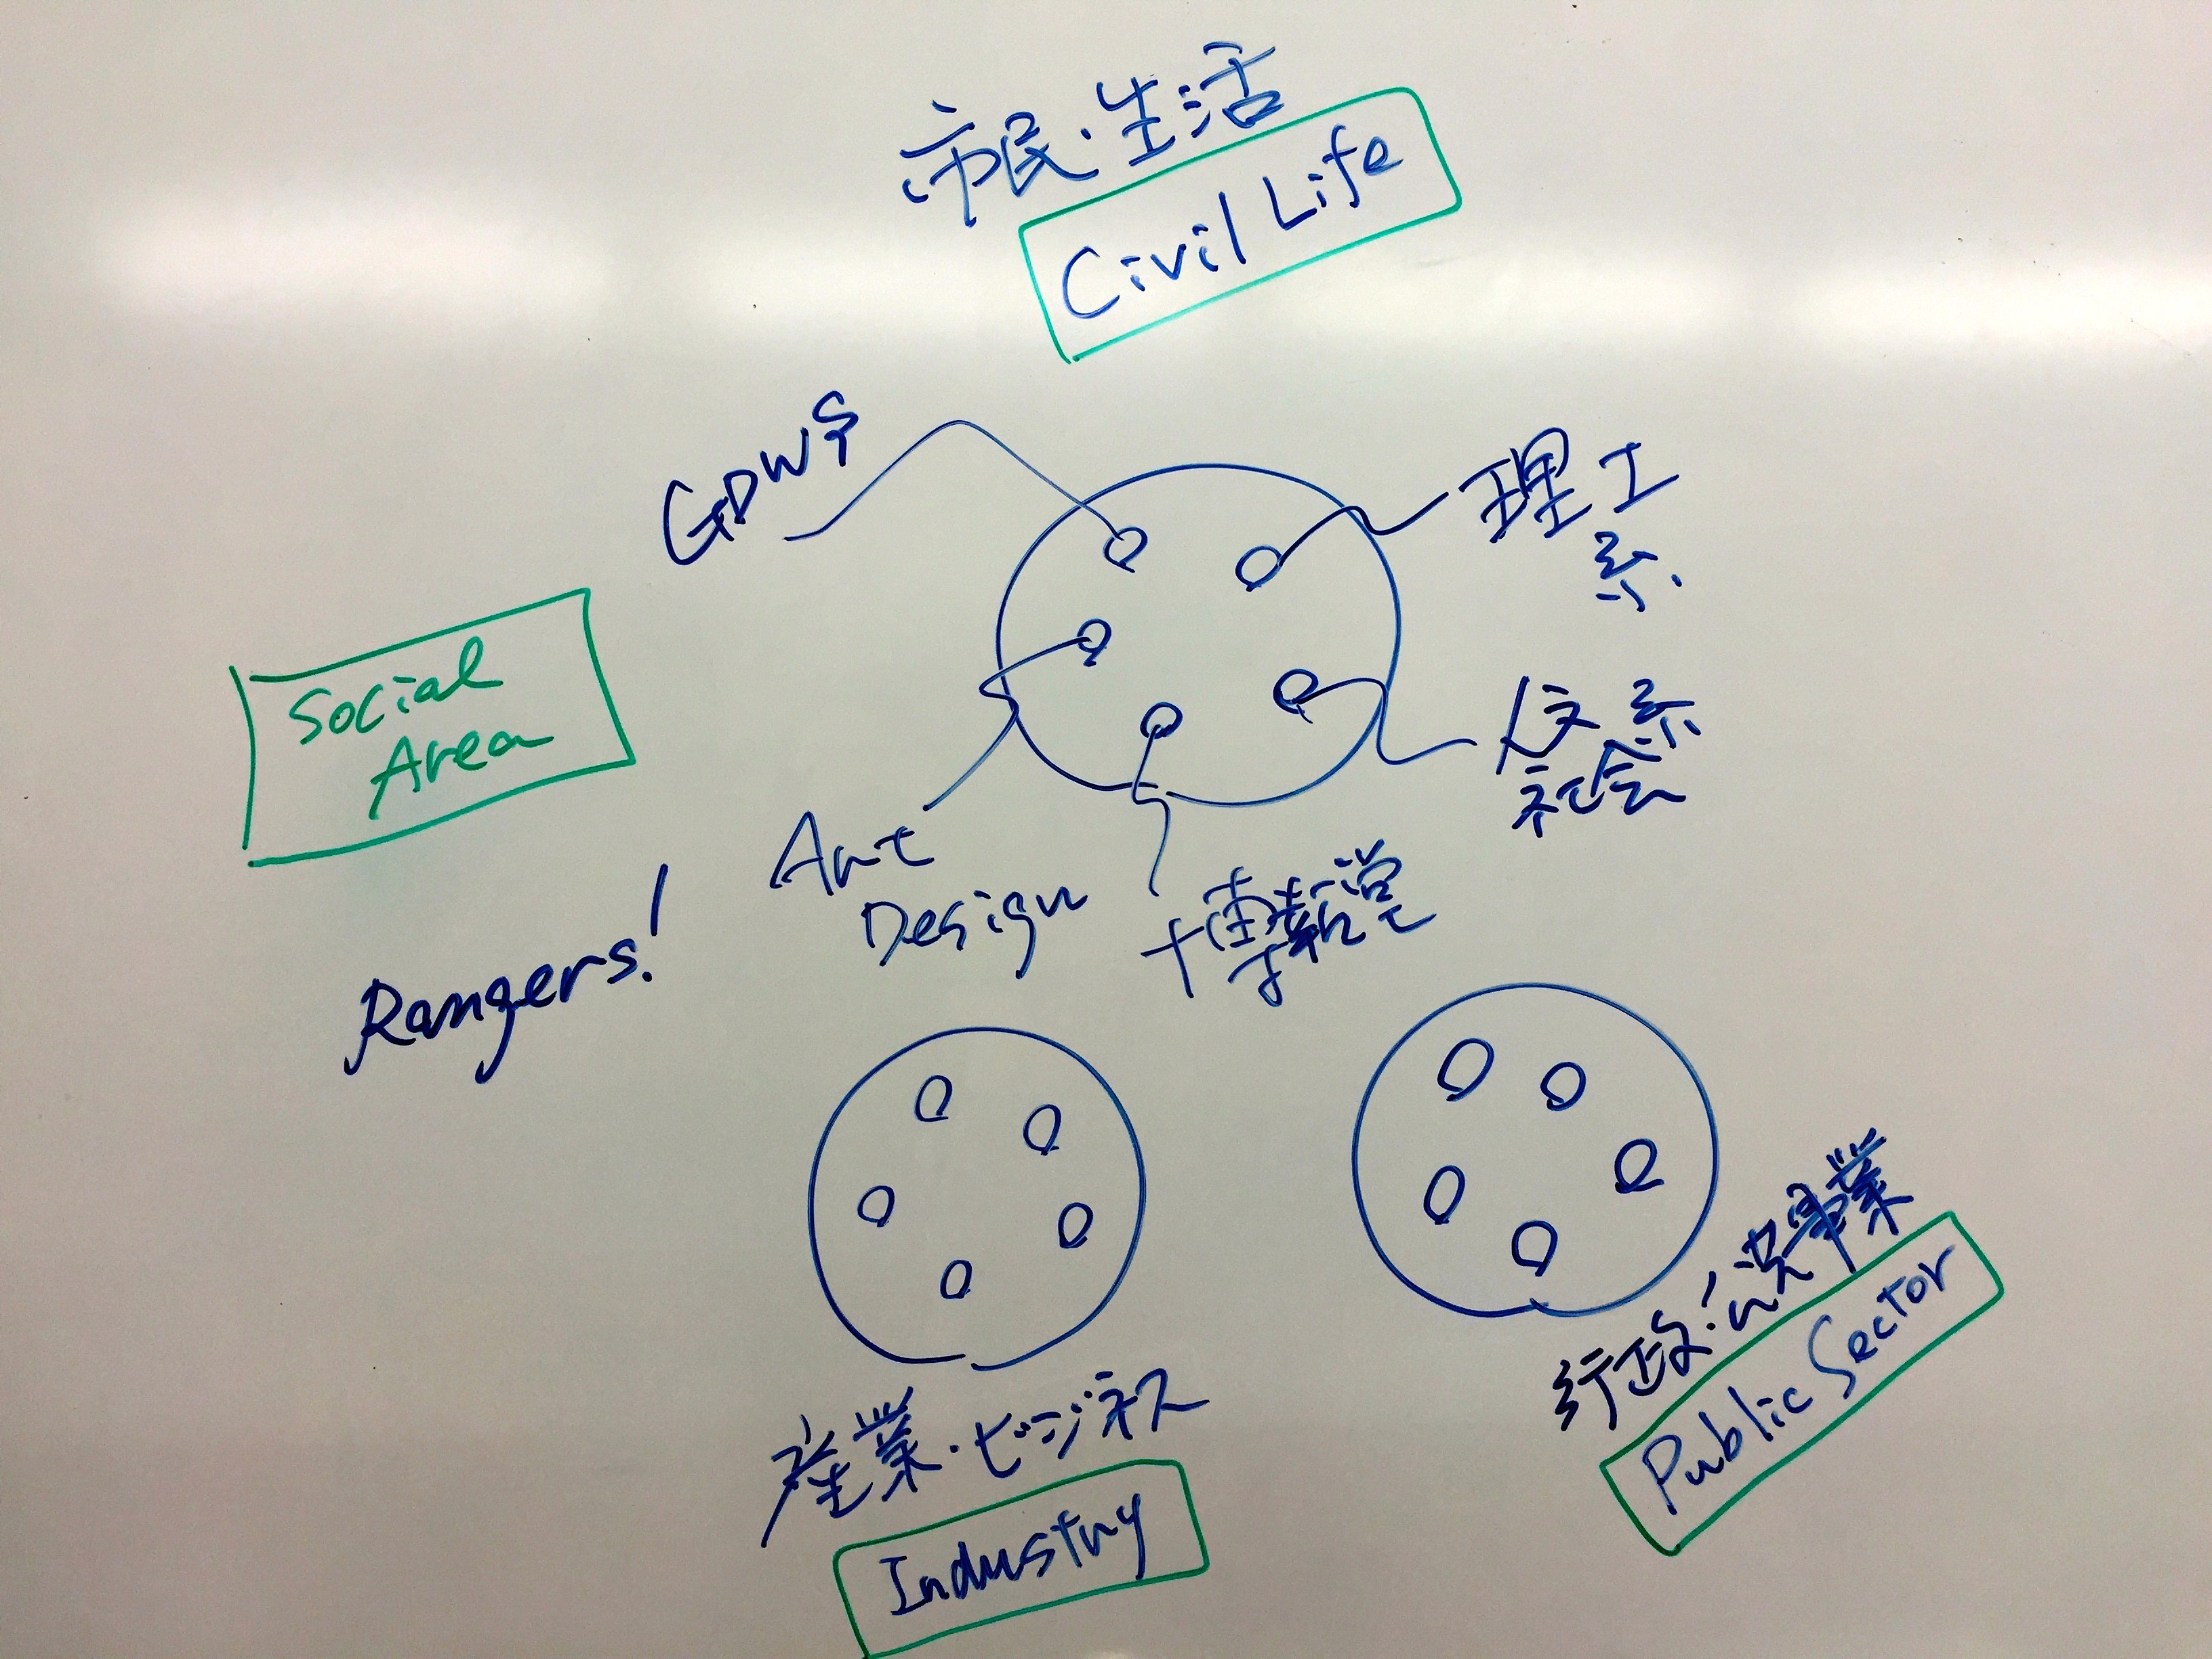 市民・生活
Civil Life
GDWS
理工
系
Social
Area
人文系
社会
Art
Design
博報堂
Rangers!
行政・公共事業
Public Sector
産業・ビジネス
Industry